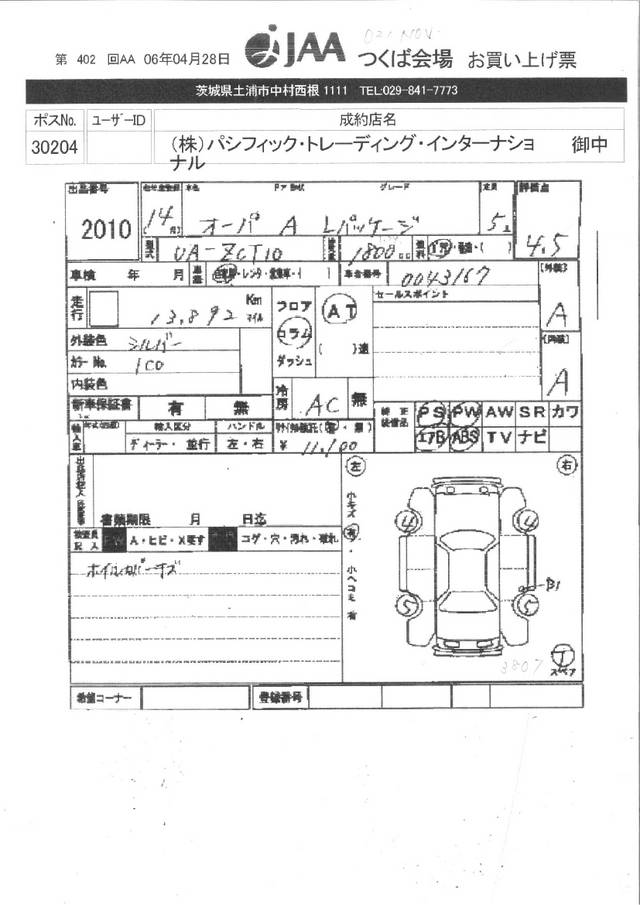 第 402 回AA 06年04月28日 JAA つくば会場 お買い上げ票
茨城県土浦市中村西根 1111 TEL:029-841-7773
ポスNo. ユーザーID 成約店名
30204 (株)パシフィック・トレーディング・インターナショナル 御中
出品番号 車名 ドア形状 グレード 定員 評価点
2010 14年 月 オーパ A Lパッケージ 5人 4.5
型式 UA-ZCT10 1800cc 燃料
車検 年 月 車歴 自家用・レンタ・営業車・( ) 車台番号 0043167 [外装] A
走行 13,892 Km マイル フロア コラム ダッシュ AT ( )速 セールスポイント
外装色 シルバー
カラーNo. 1C0 [内装] A
内装色
冷房 AC 無
新車保証書 有 無 純正装備品 PS PW AW SR カワ
輸入車 輸入区分 ハンドル エアB ABS TV ナビ
ディーラー・並行 左・右 ¥ 11,100
左 右
書類期限 月 日迄 小キズ 有
検査員記入 A・ヒビ・X要す コゲ・穴・汚れ・破れ 小ヘコミ 有
ホイルカバーキズ
4 4
B1
5 5
3807 T スペア
希望コーナー 登録番号